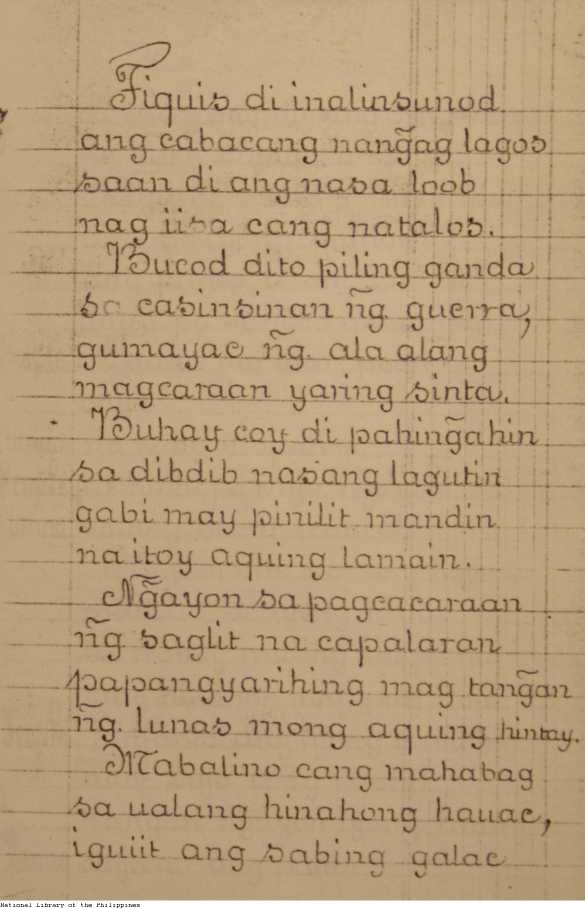 Fiquis di inalinsunod
ang cabacang nang̃ag lagos
saan di ang nasa loob
nag iisa cang natalos.
Bucod dito piling ganda
sa casinsinan ng̃. guerra,
gumayac ng̃. ala alang
magcaraan yaring sinta.
Buhay coy di pahing̃ahin
sa dibdib nasang lagutin
gabi may pinilit mandin
na itoy aquing lamain.
Ng̃ayon sa pagcacaraan
ng̃. saglit na capalaran
papangyarihing mag tang̃an
ng̃. lunas mong aquing hintay.
Mabalino cang mahabag
sa ualang hinahong hauac,
iguiit ang sabing galac
National Library of the Philippines